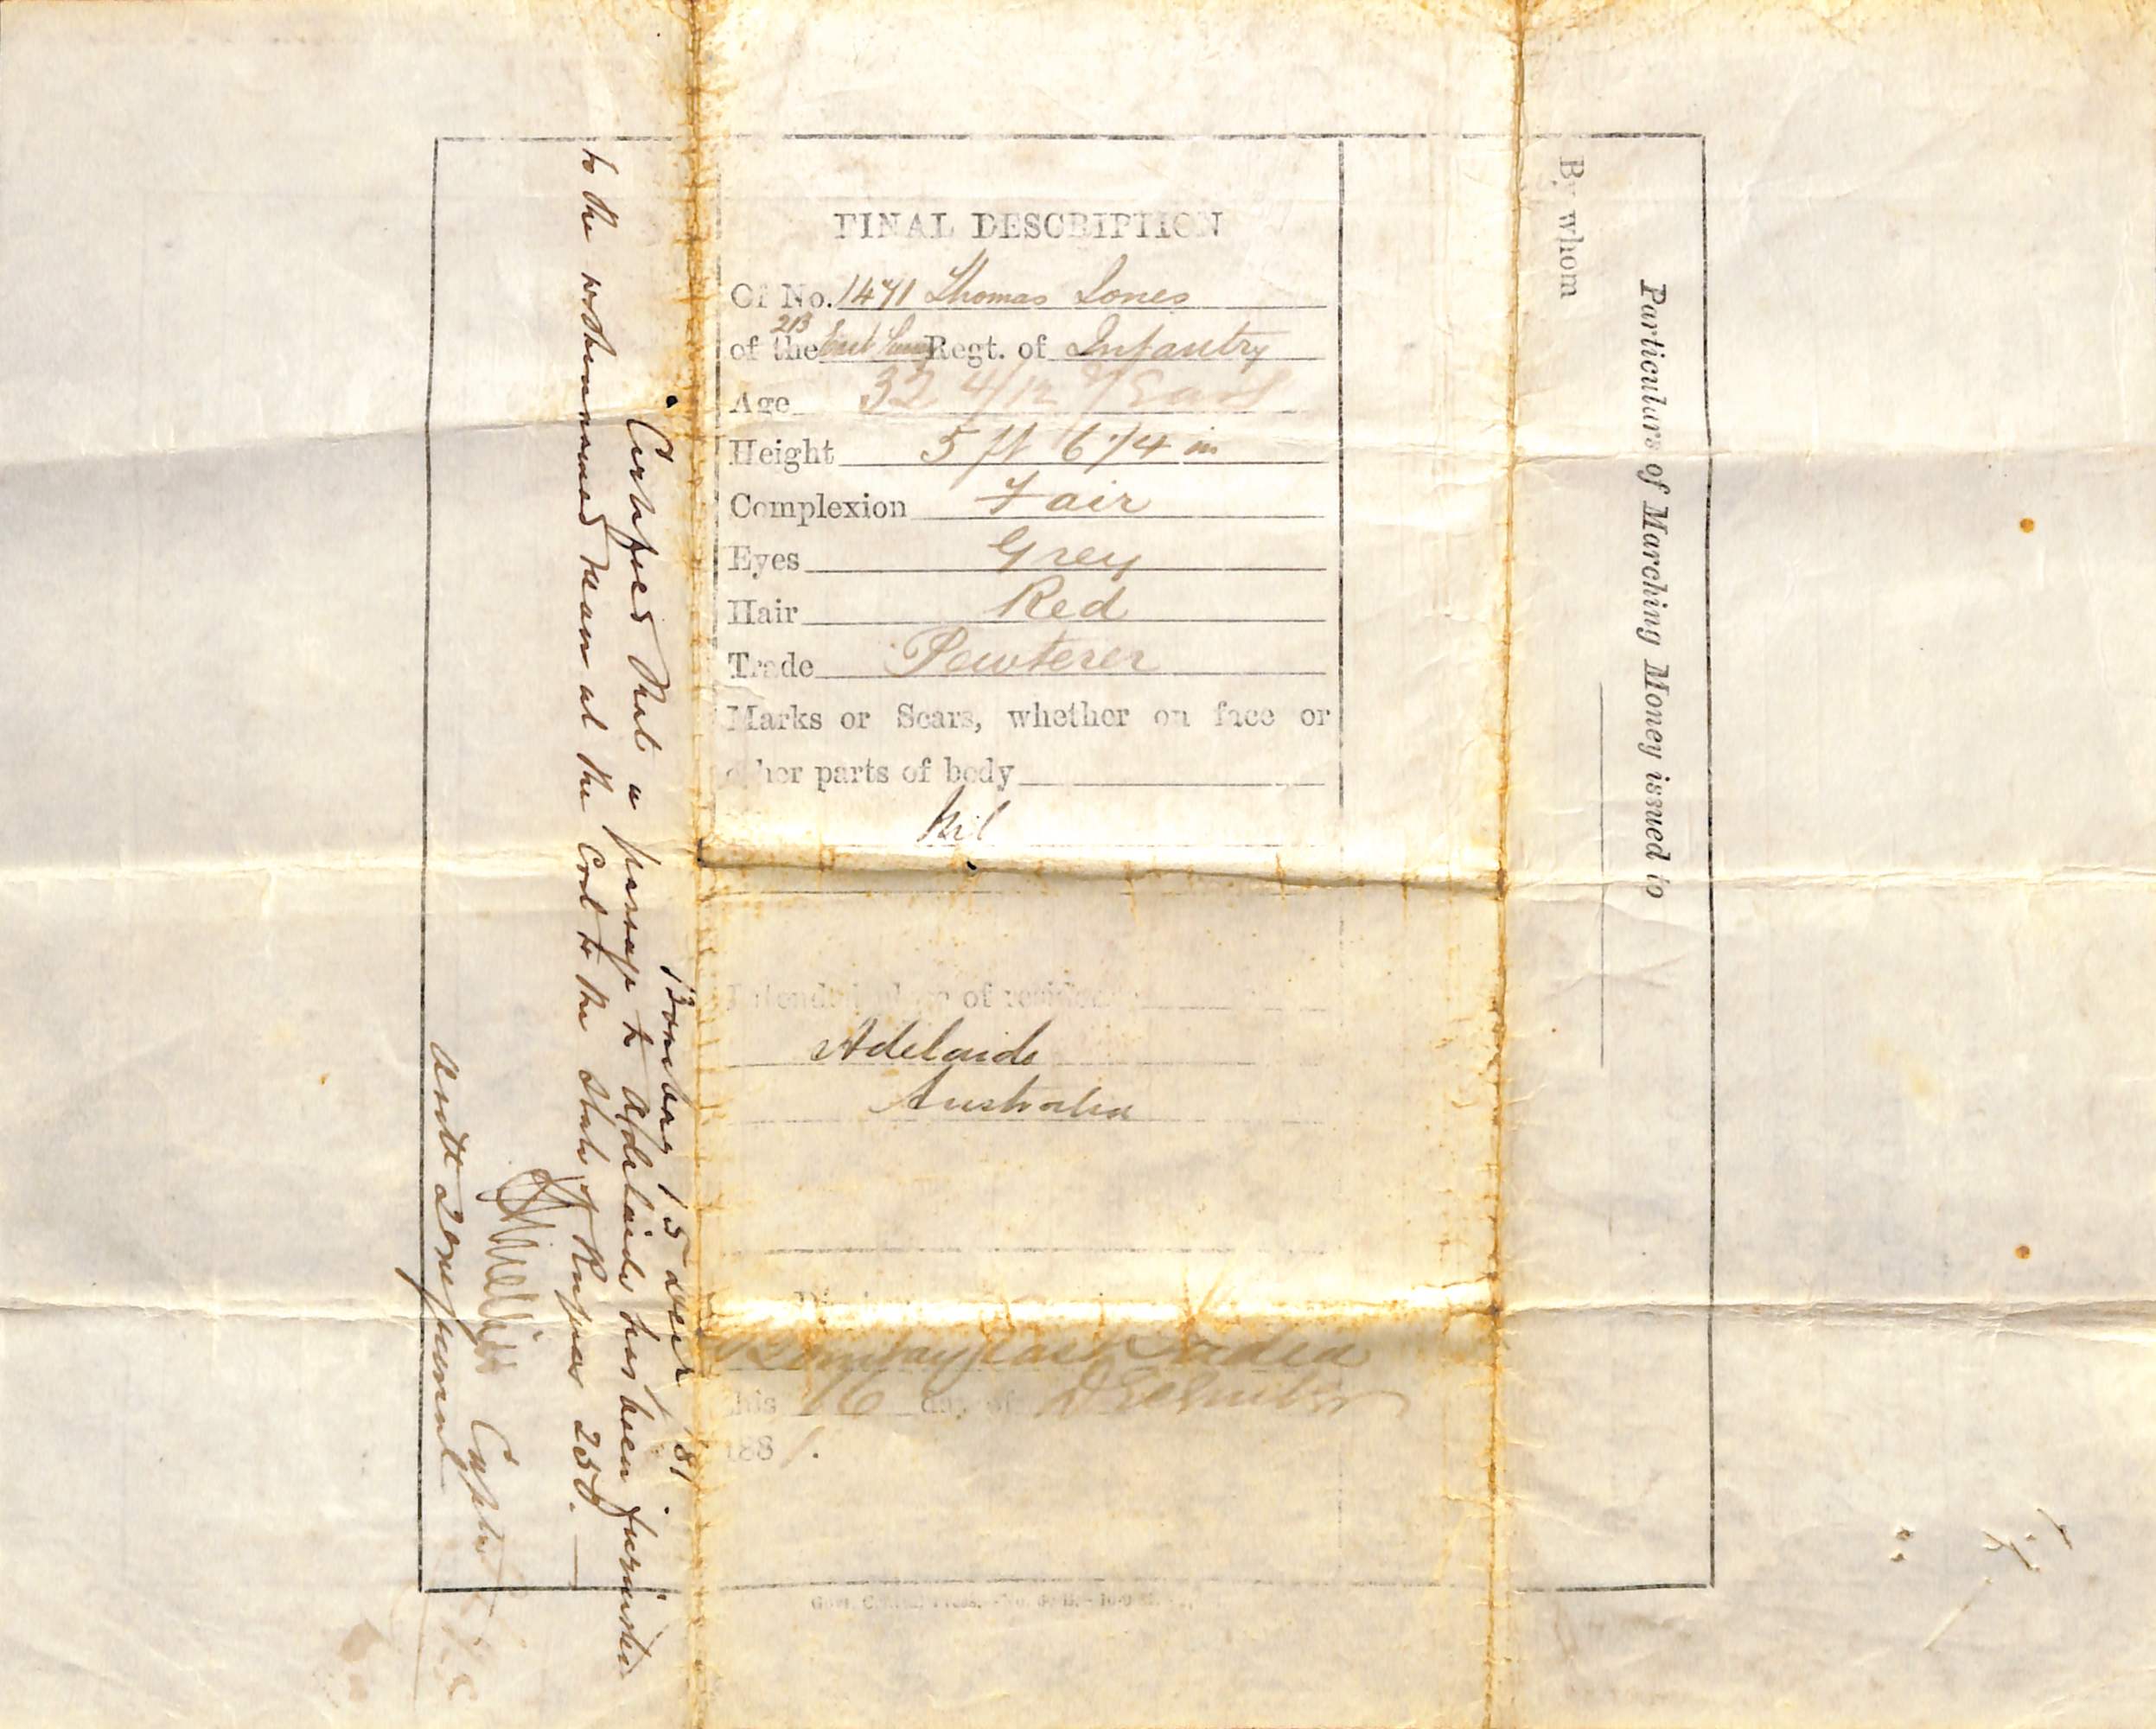 FINAL DESCRIPTION
Of No. 1471 Thomas Jones
of the 2/B East Regt. of Infantry
Age 32 4/12 Years
Height 5 ft 6 1/4 in
Complexion Fair
Eyes Grey
Hair Red
Trade Pewterer
Marks or Scars, whether on face or
other parts of body
Nil
Intended place of residence
Adelaide
Australia
Bombay East India
this 16 day of December
1881.
Bombay 15 Decr 81
Certified that a passage to Adelaide has been furnished
to the withinnamed man at the cost to the State of Rupees 250.
Captn
Particulars of Marching Money issued to
By whom